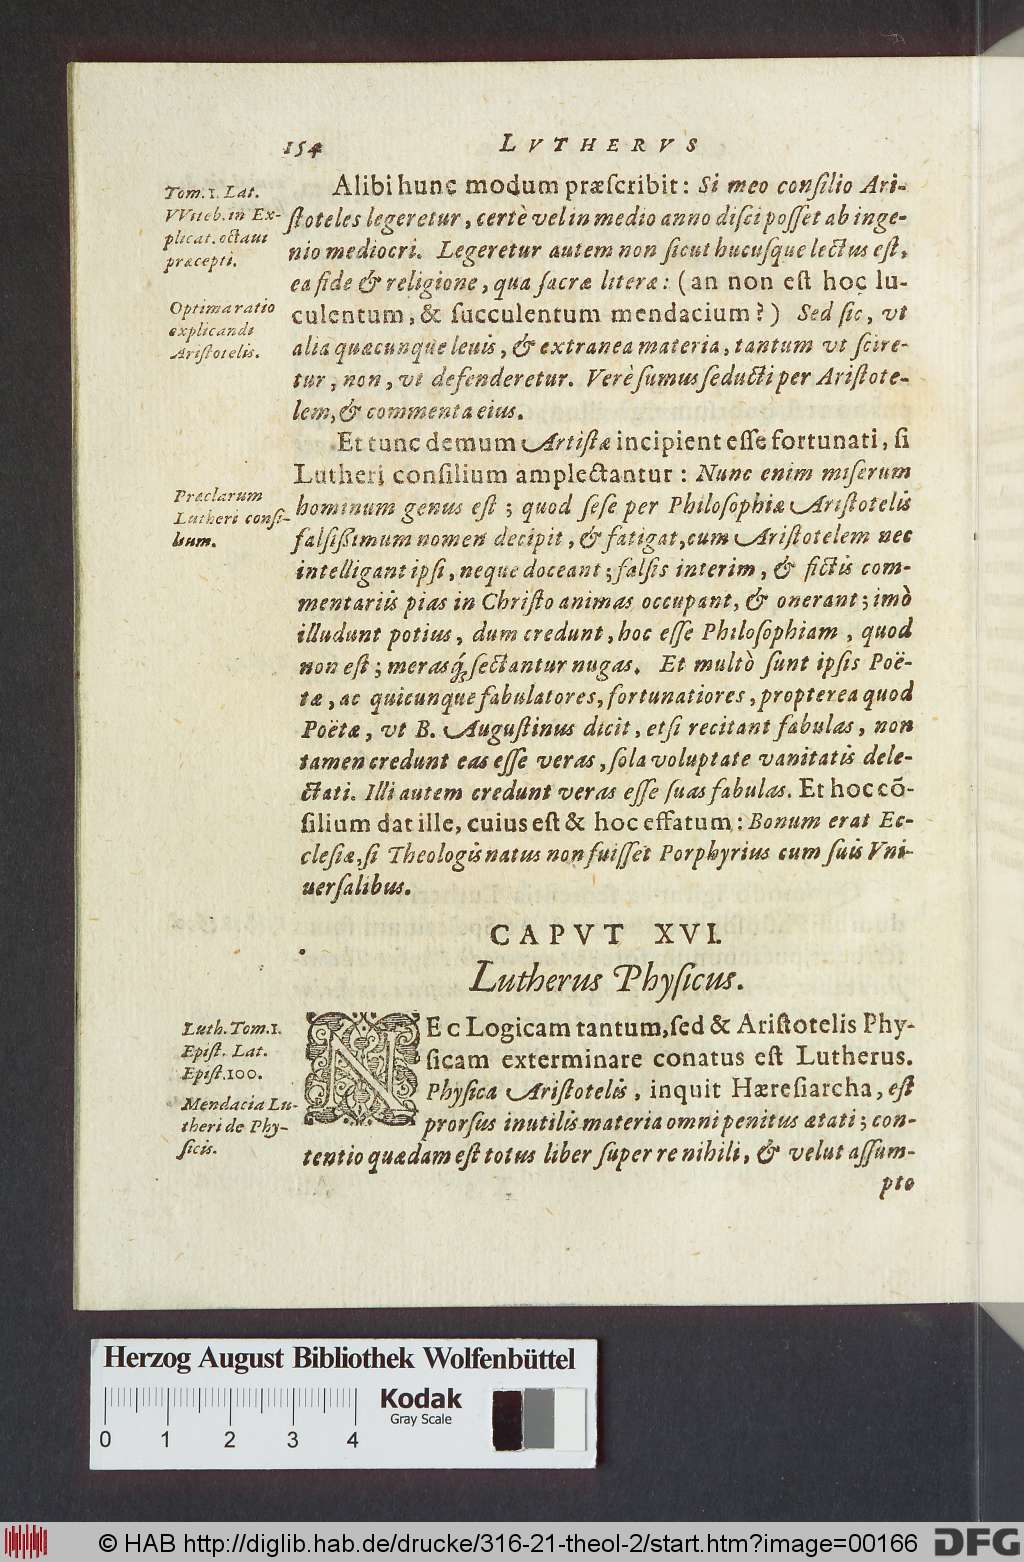 154 LVTHERVS
Tom. 1. Lat.
VViteb. in Ex-
plicat. octaui
præcepti.
Alibi hunc modum præſcribit: Si meo conſilio Ari-
ſtoteles legeretur, certè vel in medio anno diſci poſſet ab inge-
nio mediocri. Legeretur autem non ſicut hucuſque lectus eſt,
ea fide & religione, qua ſacræ literæ: (an non eſt hoc lu-
culentum, & ſucculentum mendacium?) Sed ſic, vt
alia quæcunque leuis, & extranea materia, tantum vt ſcire-
tur, non, vt defenderetur. Verè ſumus ſeducti per Ariſtote-
lem, & commenta eius.
Optima ratio
explicandi
Ariſtotelis.
Et tunc demum Artiſtæ incipient eſſe fortunati, ſi
Lutheri conſilium amplectantur: Nunc enim miſerum
hominum genus eſt; quod ſeſe per Philoſophiæ Ariſtotelis
falſißimum nomen decipit, & fatigat, cum Ariſtotelem nec
intelligant ipſi, neque doceant; falſis interim, & fictis com-
mentariis pias in Chriſto animas occupant, & onerant; imò
illudunt potius, dum credunt, hoc eſſe Philoſophiam, quod
non eſt; merasq́; ſectantur nugas. Et multò ſunt ipſis Poë-
tæ, ac quicunque fabulatores, fortunatiores, propterea quod
Poëtæ, vt B. Auguſtinus dicit, etſi recitant fabulas, non
tamen credunt eas eſſe veras, ſola voluptate vanitatis dele-
ctati. Illi autem credunt veras eſſe ſuas fabulas. Et hoc cõ-
ſilium dat ille, cuius eſt & hoc effatum: Bonum erat Ec-
cleſiæ, ſi Theologis natus non fuiſſet Porphyrius cum ſuis Vni-
uerſalibus.
Præclarum
Lutheri conſi-
lium.
CAPVT XVI.
Lutherus Phyſicus.
NEc Logicam tantum, ſed & Ariſtotelis Phy-
ſicam exterminare conatus eſt Lutherus.
Phyſica Ariſtotelis, inquit Hæreſiarcha, eſt
prorſus inutilis materia omni penitus ætati; con-
tentio quædam eſt totus liber ſuper re nihili, & velut aſſum-
pto
Luth. Tom. 1.
Epiſt. Lat.
Epiſt. 100.
Mendacia Lu-
theri de Phy-
ſicis.
Herzog August Bibliothek Wolfenbüttel
0 1 2 3 4
Kodak
Gray Scale
© HAB http://diglib.hab.de/drucke/316-21-theol-2/start.htm?image=00166
DFG